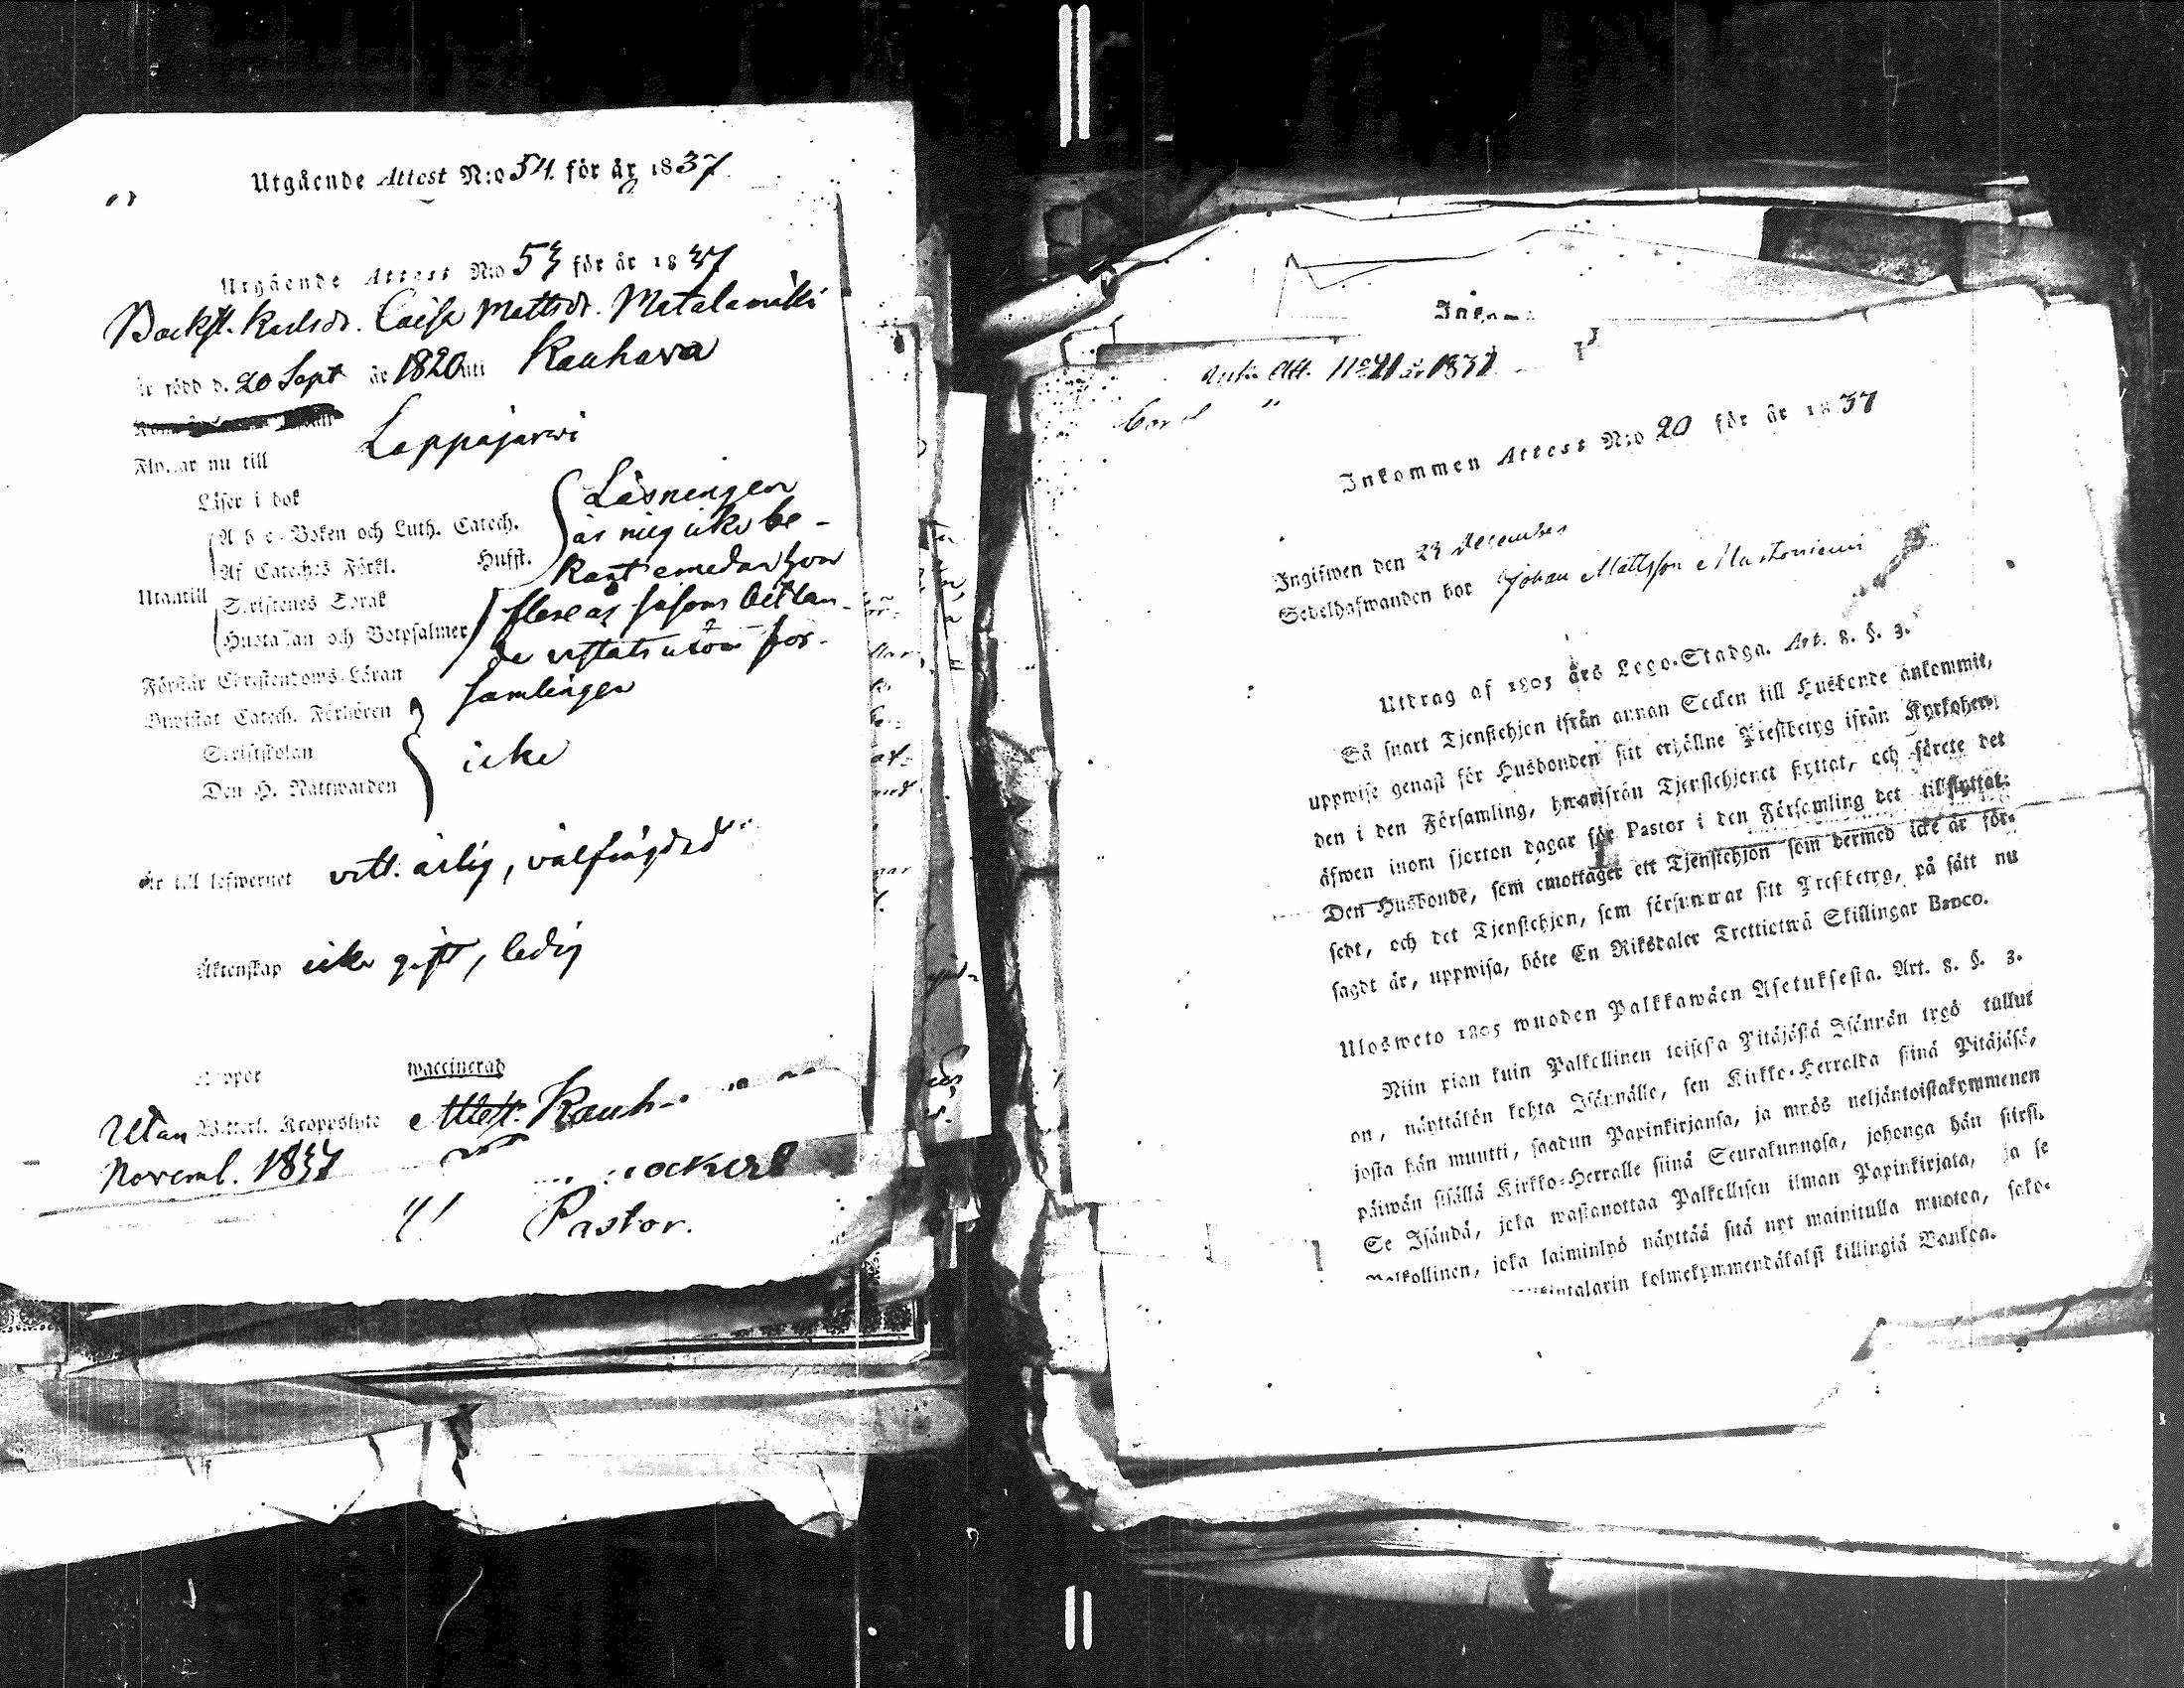 Utgående Attest N:o 54. för år 1837
Utgående Attest N:o 53 för år 1837
Backst. Karlsdr. Caisa Mattsdr. Metalamäki
är född d. 20 Sept år 1820 uti Kauhava
Flyttar nu till Lappajärvi
Läser i bok
A b c-Boken och Luth. Catech.
Af Cateches Förkl. Hufst.
Utantill
Skriftenes Språk
Hustaflan och Botpsalmer
Förstår Christendoms-Läran
Biwistat Catech. Förhören
Skriftskolan
Den H. Nattwarden
Läsningen
är mig icke be-
kant emedan hon
flere år såsom bettlan-
de vistats utom för-
samlingen
icke
Är till lefwernet vitt. ärlig, välfrägdad
Äktenskap icke gift, ledig
Koppor waccinerad
Utan Witterl. Kroppslyte Attest. Kauh
Novemb. 1837
Pastor.
Att. N:o 21 år 1837
Inkommen Attest N:o 20 för år 1837
Ingifwen den 23 December
Sedelhafwanden bor Johan Mattsson Mastoniemi
Utdrag af 1805 års Lego-Stadga. Art. 8. §. 3.
Så snart Tjenstehjon ifrån annan Socken till Husbonde ankommit,
uppwise genast för Husbonden sitt erhållne Prestbetyg ifrån Kyrkoher-
den i den Församling, hwarifrån Tjenstehjonet flyttat, och förete det
äfwen inom fjorton dagar för Pastor i den Församling det tillflyttat.
Den Husbonde, som emottager ett Tjenstehjon som dermed icke är för-
sedt, och det Tjenstehjon, som försummar sitt Prestbetyg, på sätt nu
sagdt är, uppwisa, böte En Riksdaler Trettiotwå Skillingar Banco.
Ulosweto 1805 wuoden Palkkawäen Asetuksesta. Art. 8. §. 3.
Niin pian kuin Palkollinen toisesta Pitäjästä Isännän tygö tullut
on, näyttäkön kohta Isännälle, sen Kirkko-Herralda siinä Pitäjäsä,
josta hän muutti, saadun Papinkirjansa, ja myös neljäntoistakymmenen
päiwän sisällä Kirkko-Herralle siinä Seurakunnasa, johonga hän siirsi.
Se Isändä, joka wastanottaa Palkollisen ilman Papinkirjata, ja se
Palkollinen, joka laiminlyö näyttää sitä nyt mainitulla muotoa, sako-
kolmekymmendäkaksi killingiä Bankoa.